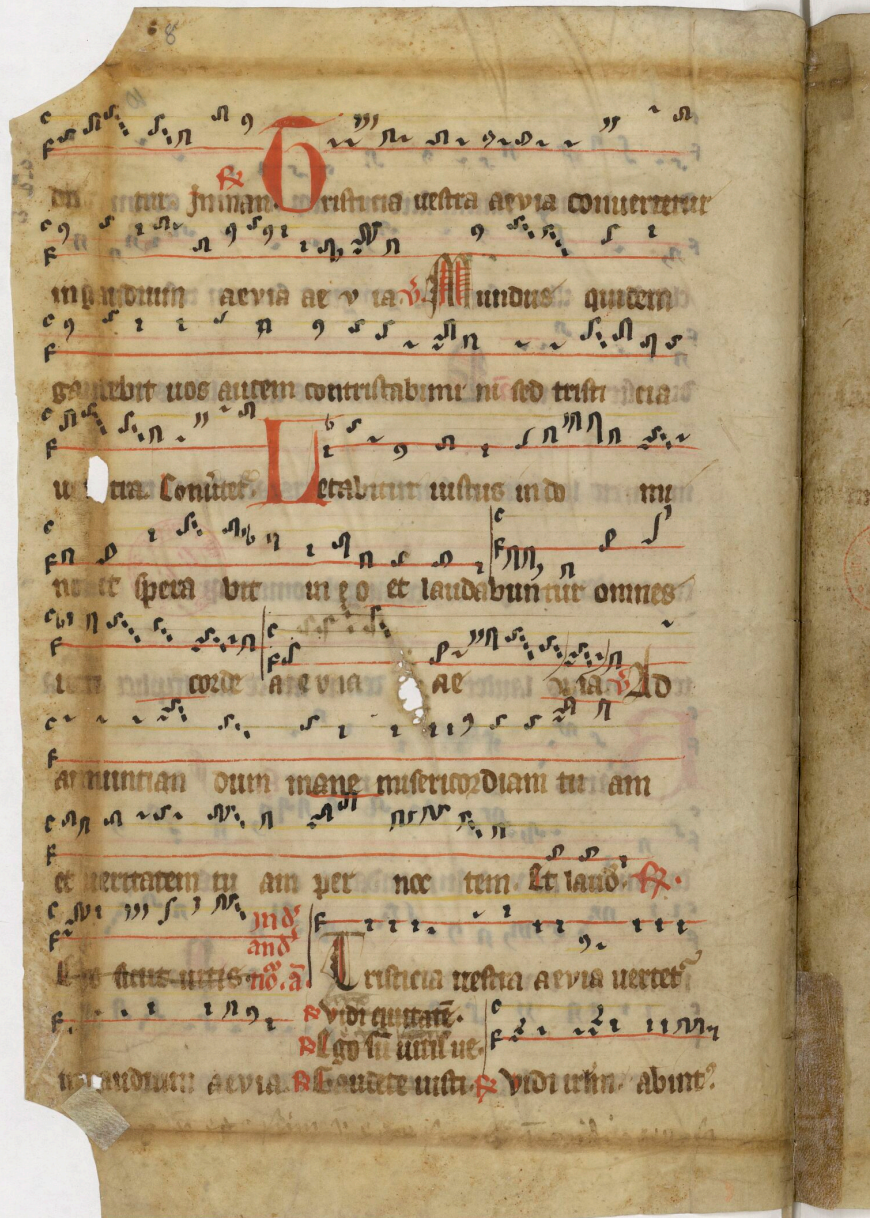 8
tur In man. ℟ Tristicia uestra aevia conuertetur
in gaudium aevia ae v ia ℣ Mundus quidem
gaudebit uos autem contristabimi ni sed tristi cia
tra. Conuert. Letabitur iustus in do mi
spera bit in e o et laudabuntur omnes
corde a e v ia ae v ia ℣ Ad
annuntian dum mane misericordiam tu am
et ueritatem tu am per noc tem Et laud. ℟.
Ego sicut uitis Tristicia uestra aevia uertet
℟ vidi ciuitatē.
℟ Ego sū uitis ue.
gaudium aevia. ℟ Gaudete iusti. ℟ vidi irlm. abint